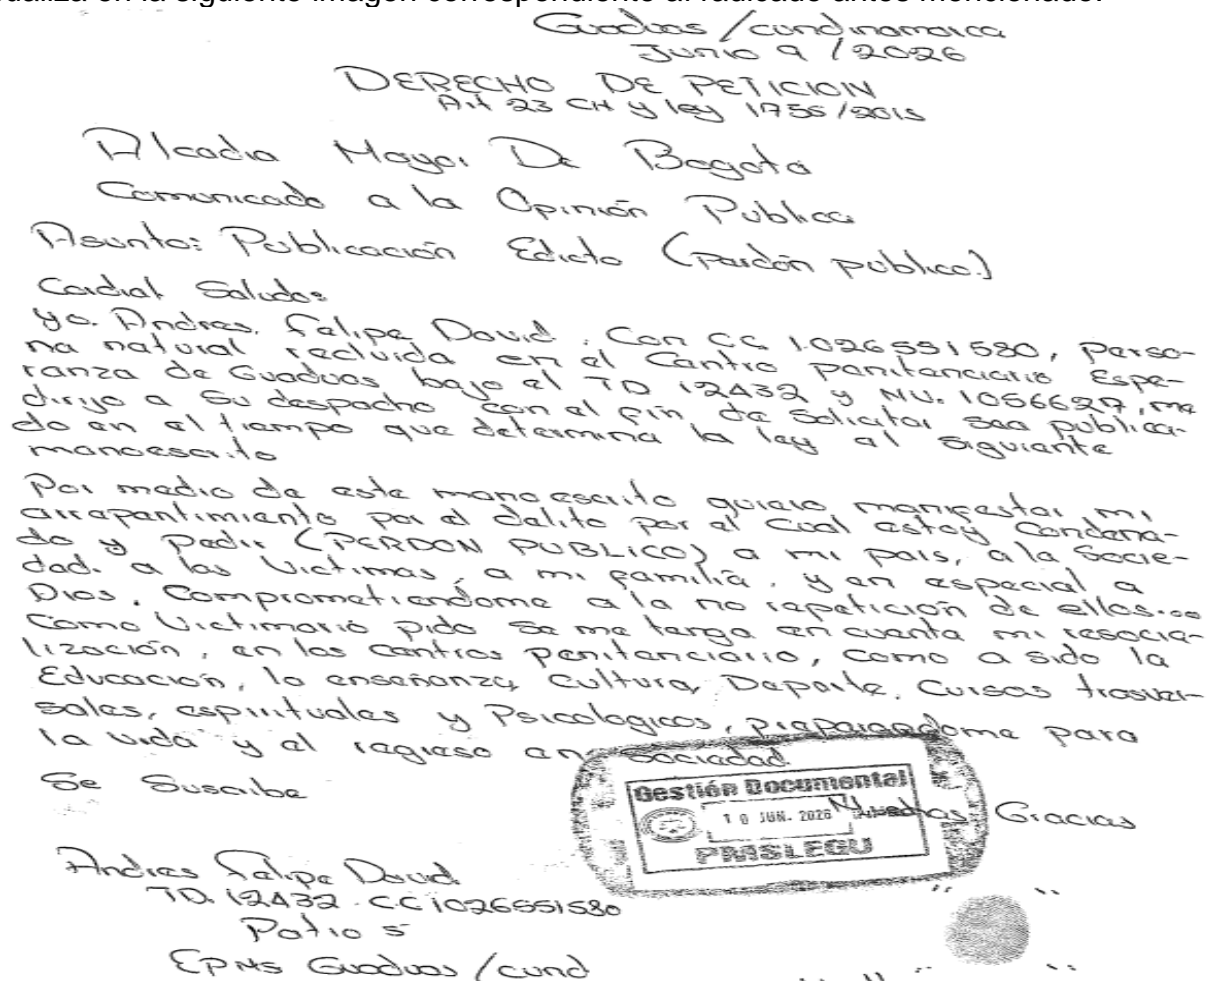 ualiza en la siguiente imagen correspondiente al radicado antes mencionado.
Guaduas / cundinamarca
Junio 9 / 2026
DERECHO DE PETICION
Art 23 CN y ley 1755/2015
Alcadia Mayor De Bogota
Comunicado a la Opinión Publica
Asunto: Publicación Edicto (Perdón publico.)
Cordial Saludo:
yo. Andres. Felipe David. Con CC 1.026551580, perso-
na natural recluida en el Centro penitenciario Espe-
ranza de Guaduas bajo el TD 12432 y NU. 1056627, me
dirijo a su despacho con el fin de solicitar sea publica-
do en el tiempo que determina la ley el siguiente
manoescrito
Por medio de este manoescrito quiero manifestar mi
arrepentimiento por el delito por el cual estoy condena-
do y pedir (PERDON PUBLICO) a mi pais, a la socie-
dad. a las Victimas, a mi familia, y en especial a
Dios. Comprometiendome a la no repetición de ellos...
Como Victimario pido se me tenga en cuenta mi resocia-
lización, en los centros penitenciario, como a sido la
Educación, la enseñanza, Cultura, Deporte, Cursos trasver-
sales, espirituales y Psicologicos, preparandome para
la vida y el regreso en sociedad.
Se Suscribe
Gestión Documental
10 JUN. 2026
PMSLEGU
Muchas Gracias
Andres Felipe David
TD. 12432. CC 1026551580
Patio 5
EPMS Guaduas / cund